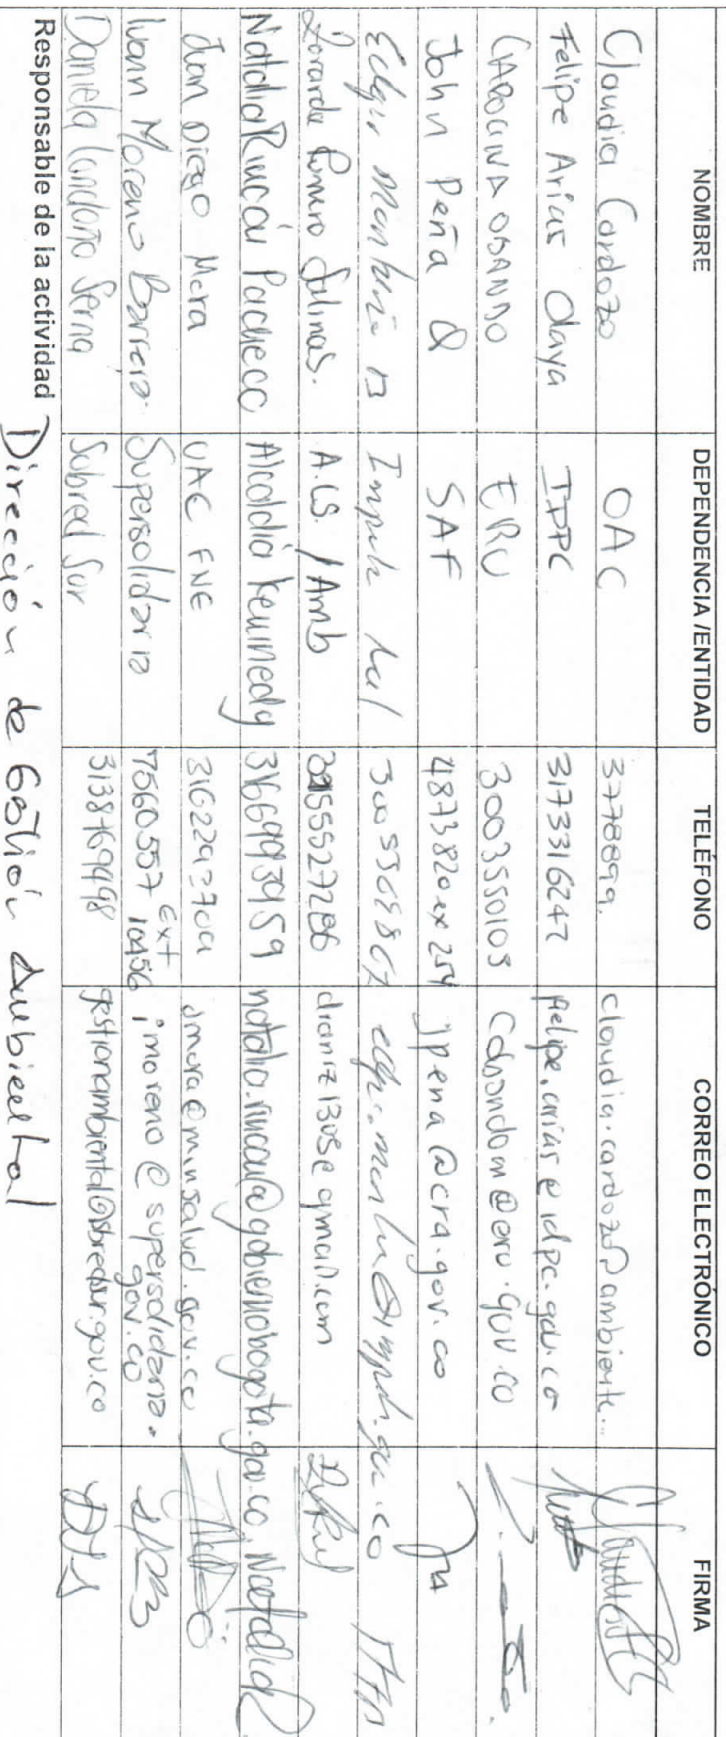 NOMBRE DEPENDENCIA /ENTIDAD TELÉFONO CORREO ELECTRÓNICO FIRMA
Claudia Cardozo OAC 3778899. claudia.cardozo@ambiente...
Felipe Arias Olaya IDPC 3173316247 felipe.arias@idpc.gov.co
CAROLINA OBANDO ERU 3003550103 cobandom@eru.gov.co
John Peña SAF 4873820 ex 254 jpena@cra.gov.co
Romero Salinas. A.L.S. / Amb
Natalia Rincón Pacheco Alcaldia Kennedy 3166993959 natalia.rincon@gobiernobogota.gov.co Natalia R
Juan Diego Mora UAC FNE jmora@minsalud.gov.co
Ivann Moreno Barrera Supersolidaria 7560557 Ext 10456 imoreno@supersolidaria.gov.co
Daniela Londoño Serna Subred Sur 3138769498 gestionambiental@subredsur.gov.co
Responsable de la actividad Dirección de Gestión Ambiental